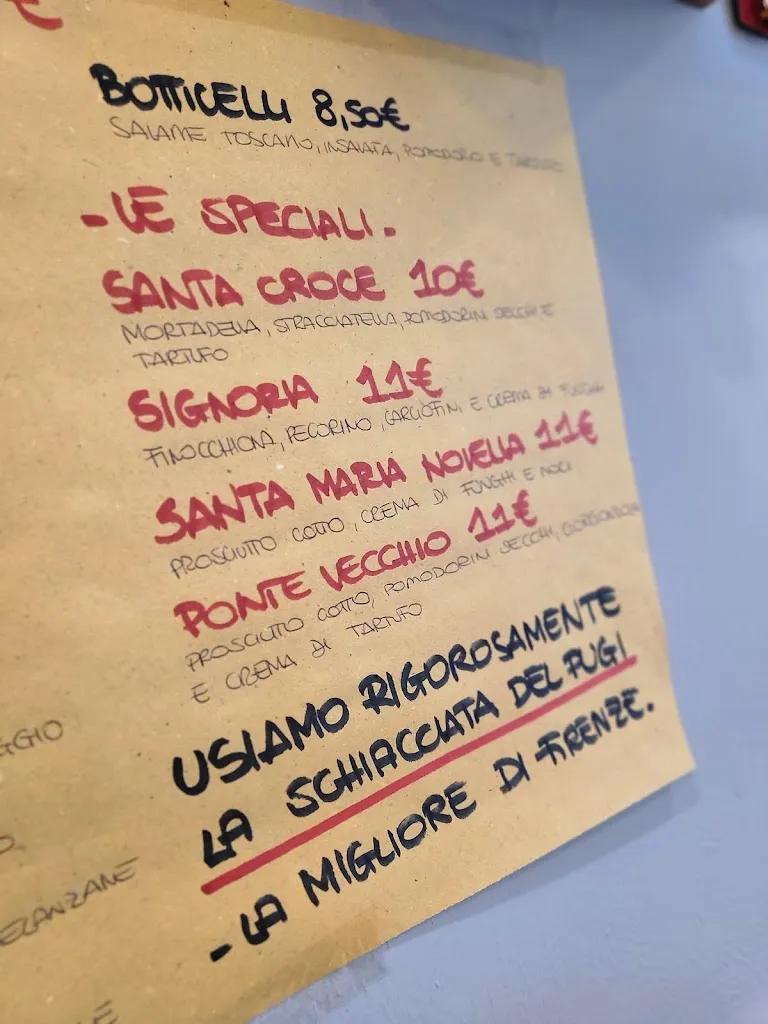 €
BOTTICELLI 8,50€
SALAME TOSCANO, INSALATA, POMODORO E TARTUFO
- LE SPECIALI -
SANTA CROCE 10€
MORTADELLA, STRACCIATELLA, POMODORINI SECCHI E
TARTUFO
SIGNORIA 11€
FINOCCHIONA, PECORINO, CARCIOFINI E CREMA DI FUNGHI
SANTA MARIA NOVELLA 11€
PROSCIUTTO COTTO, CREMA DI FUNGHI E NOCI
PONTE VECCHIO 11€
PROSCIUTO COTTO, POMODORINI SECCHI, GORGONZOLA
E CREMA DI TARTUFO
USIAMO RIGOROSAMENTE
LA SCHIACCIATA DEL PUGI
- LA MIGLIORE DI FIRENZE.
GGIO
O,
ELANZANE
E